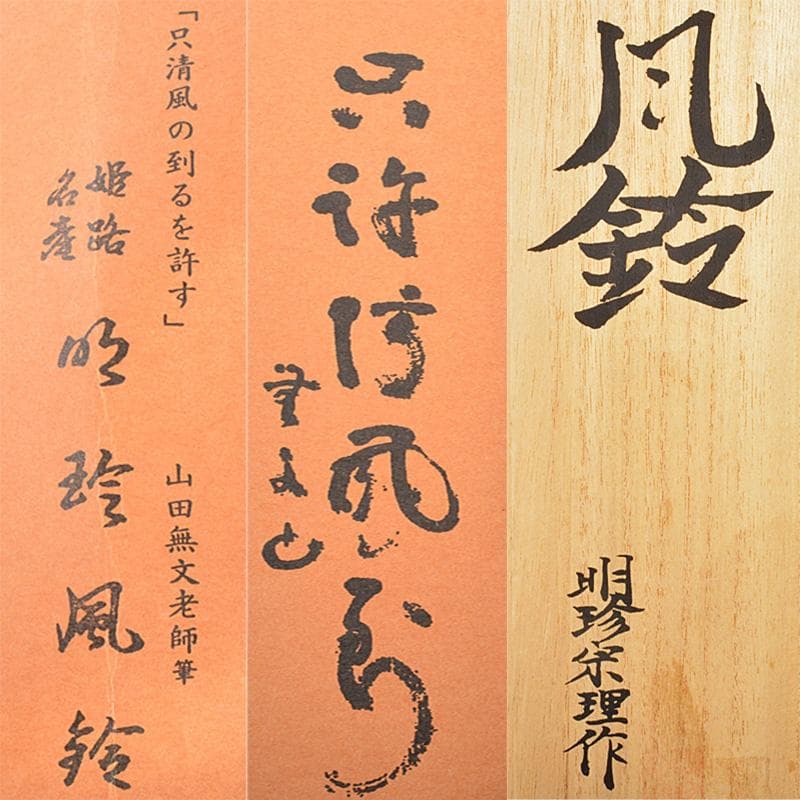 「只清風の到るを許す」
山田無文老師筆
姫路
名産
明珍風鈴
只許清風到
無文
風鈴
明珍宗理作